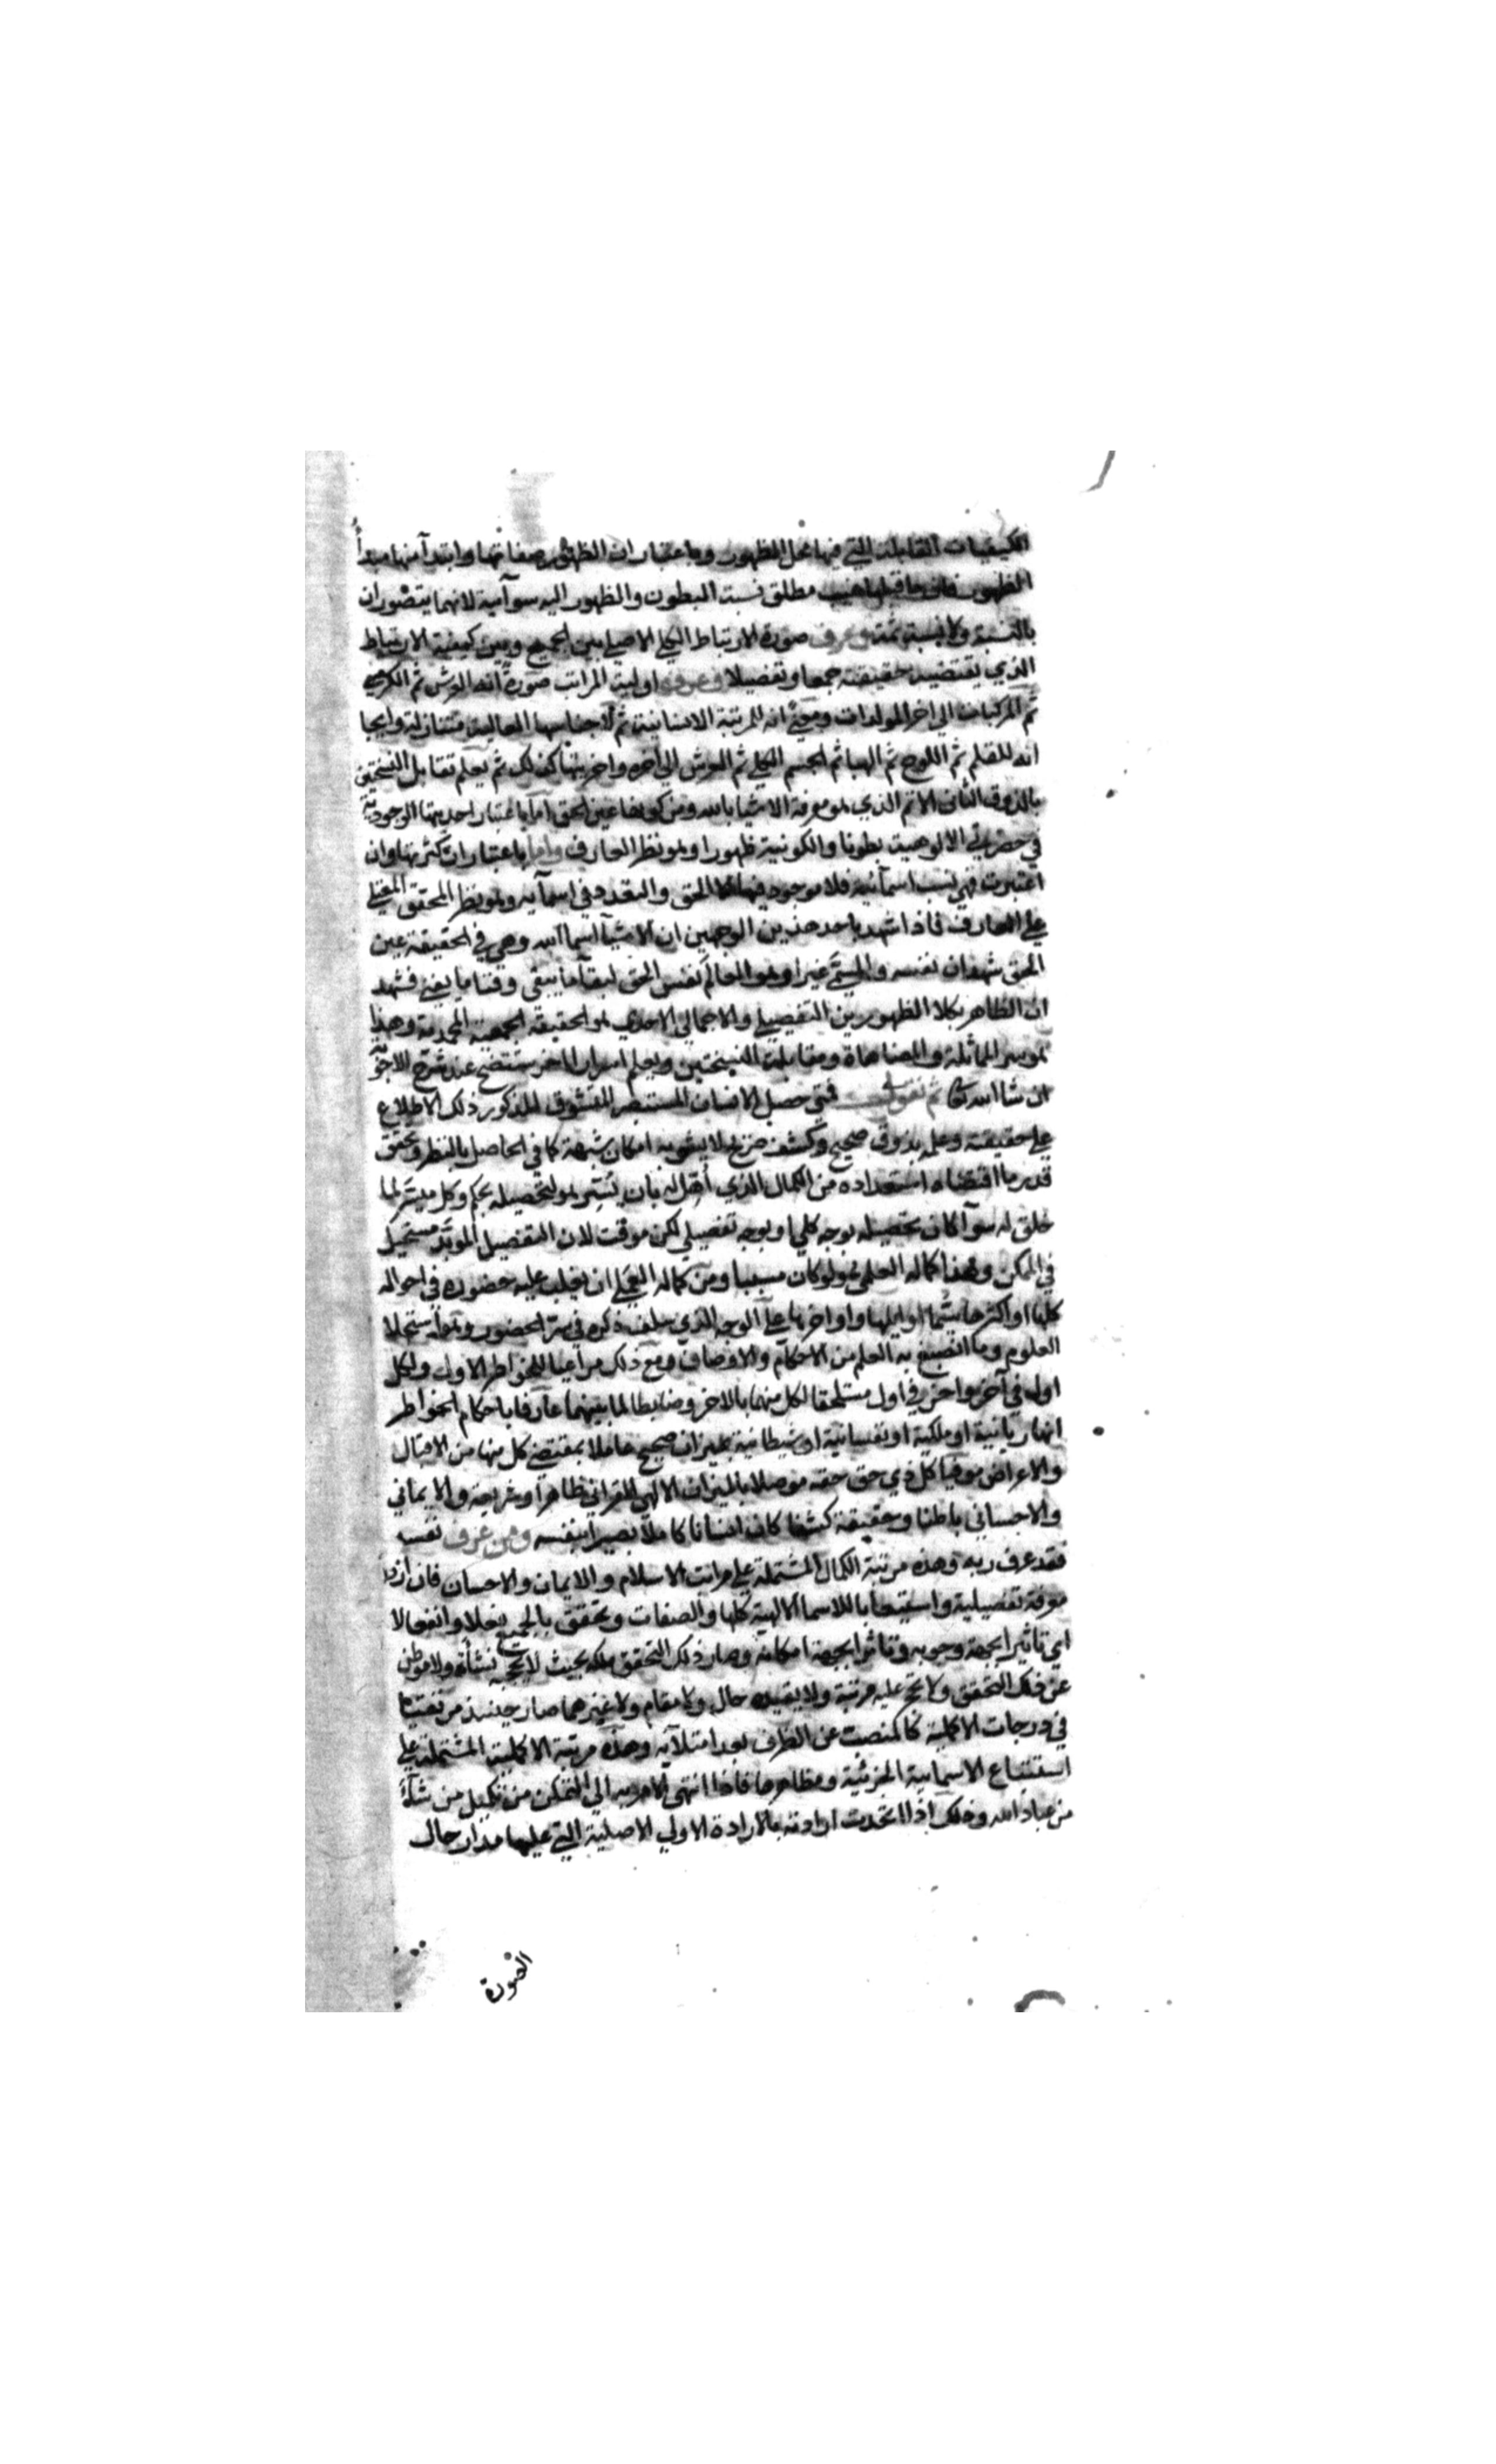 الكيفيات القابلة التي فيها محل الظهور وباعتبار ان الظهور صفاتها وابتدآ منها مبدأ
الظهور فان ما قبلها غيب مطلق نسبة البطون والظهور اليه سوآئية لانهما يتصوران
بالنسبة ولا نسبة ثمة وعرف صورة الارتباط الكلي الاصلي بين الجميع وبين كيفية الارتباط
الذي يقتضيه حقيقته جمعا وتفصيلا وعرف اولية المراتب صورة انه العرش ثم الكرسي
ثم المركبات الي اخر المولدات ومعني انه للمرتبة الانسانية ثم لاجناسها العالية متنازلة وايجا
انه للقلم ثم اللوح ثم الهبا ثم الجسم الكلي ثم العرش الي اخره واخريتها كذلك ثم يعلم تقابل النسختين
بالذوق الثاني الاتم الذي هو معرفة الاشيا بالله ومن كونها عين الحق اما باعتبار احديتها الوجودية
في حضرتي الالوهية بطونا والكونية ظهورا وهو نظر العارف واما باعتبار ان كثرتها وان
اعتبرت فهي نسب اسمآئية فلا موجود فيها الا الحق والتعدد في اسمآيه وهو نظر المحقق المعتلي
علي العارف فاذا شهد باحد هذين الوجهين ان الاشيآ اسما الله وهي في الحقيقة عين
الحق شهد ان نفسه والمسمي غيرا وهو العالم نفس الحق لبقآ ما يبقي وفنا ما يفني فشهد
ان الظاهر بكلا الظهورين التفصيلي والاجمالي الاحدي هو الحقيقة الجمعية المحمدية وهذا
هو سر المماثلة والمضاهاة ومقابلة النسختين ويعلم اسرارا اخر ستتضح عند شرح الاجوبة
ان شا الله تعا ثم نقول فمتي حصل الانسان المستبصر المتشوق المذكور ذلك الاطلاع
علي حقيقته وعلمه بذوق صحيح وكشف صريح لا يشوبه امكان شبهة كما في الحاصل بالنظر وتحقق
قدر ما اقتضاه استعداده من الكمال الذي أهل له بان يسر هو لتحصيله بحكم وكل ميسر لما
خلق له سوآ كان تحصيله بوجه كلي او بوجه تفصيلي لكن موقت لان التفصيل المؤبد مستحيل
في الممكن وهذا كماله العلمي ولو كان مسببا ومن كماله العملي ان يغلب عليه حضوره في احواله
كلها او اكثرها سيما اوايلها واواخرها علي الوجه الذي سلف ذكره في سر الحضور
العلوم وما انصبغ به العلم من الاحكام والاوصاف ومع ذلك مراعيا للخواطر الاول ولكل
اول في آخر واخر في اول مستلحقا لكل منهما بالاخر وضابطا لما بينهما عارفا باحكام الخواطر
انها ربانية او ملكية او نفسانية او شيطانية بميزان صحيح عاملا بمقتضي كل منها من الاقبال
والاعراض موفيا كل ذي حق حقه موصلا بالميزان الالهي القراني ظاهرا وشريعة والايماني
والاحساني باطنا وحقيقة كشفا كان انسانا كاملا بصيرا بنفسه ومن عرف نفسه
فقد عرف ربه وهذه مرتبة الكمال المشتملة علي مراتب الاسلام والايمان والاحسان فان ازداد
معرفة تفصيلية واستيعابا للاسما الالهية كلها والصفات وتحقق بالجميع فعلا وانفعالا
اي تاثيرا بجهة وجوبه وتاثرا بجهة امكانه وصار ذلك التحقق ملكه بحيث لا تحجبه نشأة ولا موطن
عن ذلك التحقق ولا تحكم عليه مرتبة ولا يقيده حال ولا مقام ولا غيرهما صار حينئذ مرتقيا
في درجات الاكملية كالمنصب عن الظرف بعد امتلآيه وهذه مرتبة الاكملية المشتملة علي
استتباع الاسمايية الجزئية ومظاهرها فاذا انتهي الامر به الي التمكن من تكميل من شآء
من عباد الله وذلك اذا اتحدت ارادته بالارادة الاولي الاصلية التي عليها مدار حال
الصورة